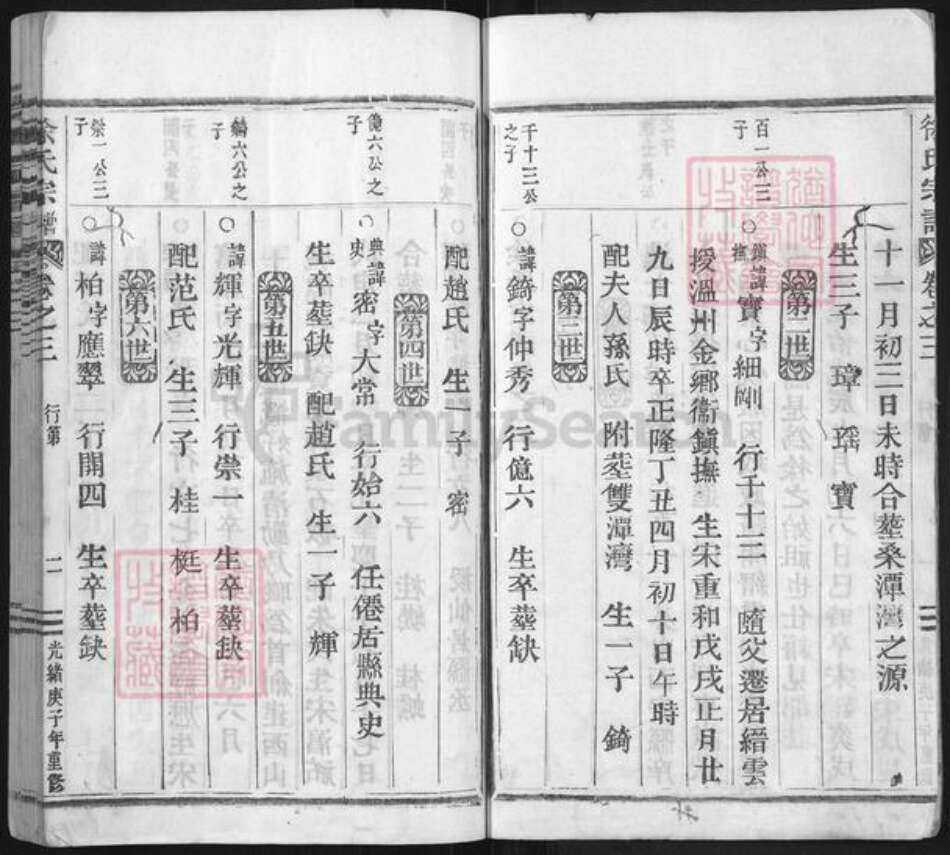 徐氏宗譜 卷之三
十一月初三日未時合塟桑潭灣之源
生三子 璋 瑶 寶
第二世
百一公三子
鎮撫 諱寶字細剛 行千十三 隨父遷居縉雲
授溫州金鄉衞鎮撫 生宋重和戊戌正月廿
九日辰時卒正隆丁丑四月初十日午時
配夫人孫氏 附塟雙潭灣 生一子 錡
第三世
千十三公之子
諱錡字仲秀 行億六 生卒塟缺
配趙氏 生一子 密
第四世
億六公之子
典史 諱密字大常 行始六 任僊居縣典史
生卒塟缺 配趙氏 生一子 輝
第五世
六公之子
諱輝字光輝 行崇一 生卒塟缺
配范氏 生三子 桂 梃 柏
第六世
崇一公三子
諱柏字應翠 行開四 生卒塟缺
徐氏宗譜 卷之三 行第 二 光緒庚子年重修